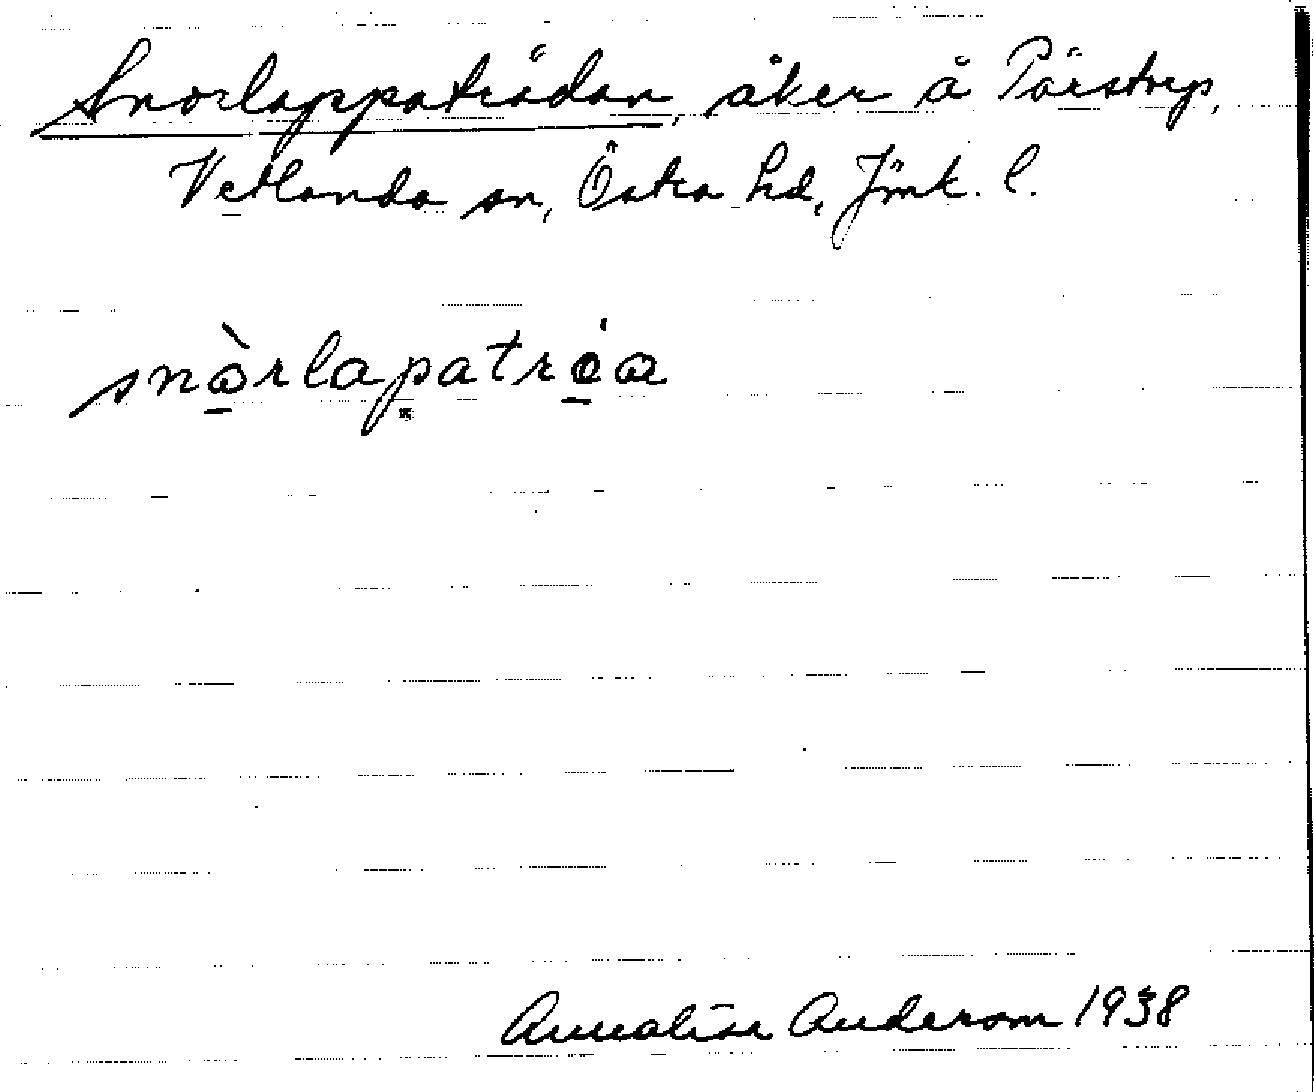 Snorlappaträdan, åker å Pärstorp,
Vetlanda sn, Östra hd, Jönk. l.
snòrlapatréa
Annalisa Anderson 1938